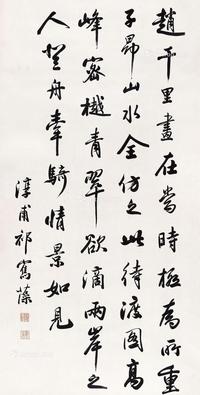 趙千里畫在當時極為所重
子昂山水全仿之此待渡圖高
峰密樾青翠欲滴兩岸之
人登舟牽騎情景如見
淳甫祁寯藻